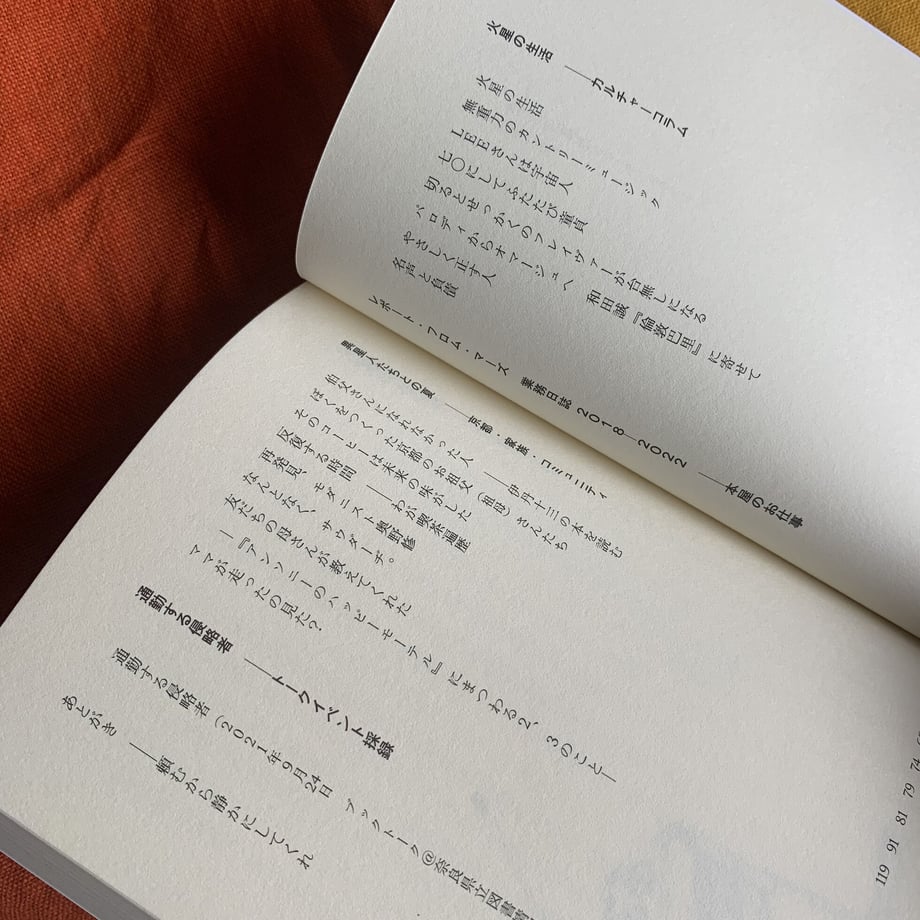 火星の生活 ――カルチャーコラム
火星の生活
無重力のカントリーミュージック
LEEさんは宇宙人
七〇にしてふたたび童貞
切るとせっかくのフレイヴァーが台無しになる
パロディからオマージュへ 和田誠『倫敦巴里』に寄せて
やさしく正す人
名声と負債
レポート・フロム・マーズ 業務日誌2018―2022 ――本屋のお仕事
異星人たちとの夏 ――京都・家族・コミュニティ
伯父さんになれなかった人――伊丹十三の本を読む
ぼくをつくった京都のお祖父（祖母）さんたち
そのコーヒーは未来の味がした
反復する時間――わが喫茶遍歴
再発見、モダニスト奥野修
なんとなく、サウダーヂ。
友だちの母さんが教えてくれた
―『アンソニーのハッピーモーテル』にまつわる2、3のこと―
ママが走ったの見た？
通勤する侵略者 ――トークイベント採録
通勤する侵略者（2021年9月24日 ブックトーク@奈良県立図書
あとがき ――頼むから静かにしてくれ
74
79
81
91
119